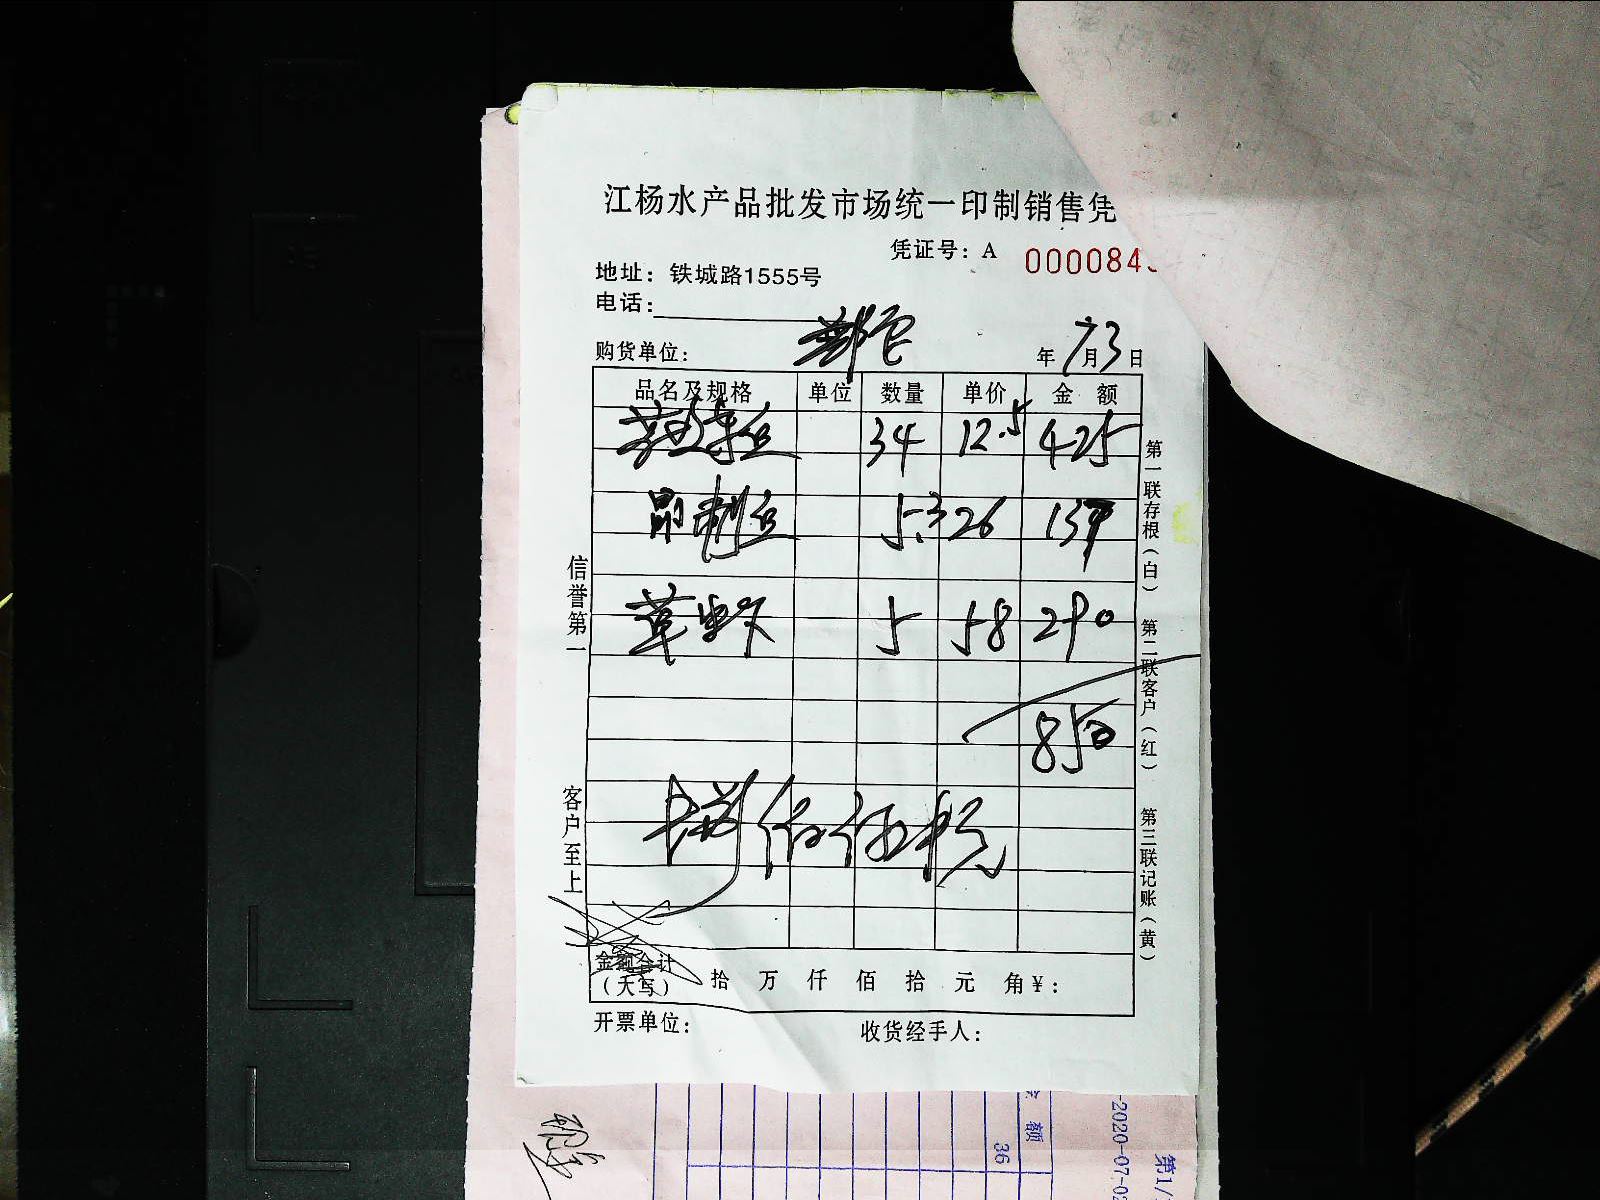 江杨水产品批发市场统一印制销售凭
凭证号：A 000084
地址：铁城路1555号
电话：
购货单位： 年 7月3日
品名及规格 单位 数量 单价 金 额
34 12.5 425
5.3 26 139
草虾 5 58 290
850
捌佰伍十元
金额合计
（大写） 拾 万 仟 佰 拾 元 角 ¥：
开票单位： 收货经手人：
信誉第一
客户至上
第一联存根（白）
第二联客户（红）
第三联记账（黄）
额
36
-2020-07-02
第1/